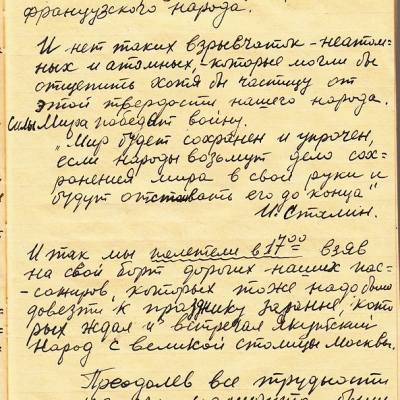 французского народа.
И нет таких взрывчаток - неатом-
ных и атомных, - которые могли бы
отщепить хотя бы частицу от
этой твердости нашего народа.
Силы Мира победят войну.
"Мир будет сохранен и упрочен,
если народы возьмут дело сох-
ранения мира в свои руки и
будут отстаивать его до конца"
И. Сталин.
Итак мы полетели в 17⁰⁰ взяв
на свой борт дорогих наших пас-
-сажиров, которых тоже надо было
довезти к празднику заранее, кото
рых ждал и встречал Якутский
Народ с великой столицы Москвы.
Преодолев все трудности